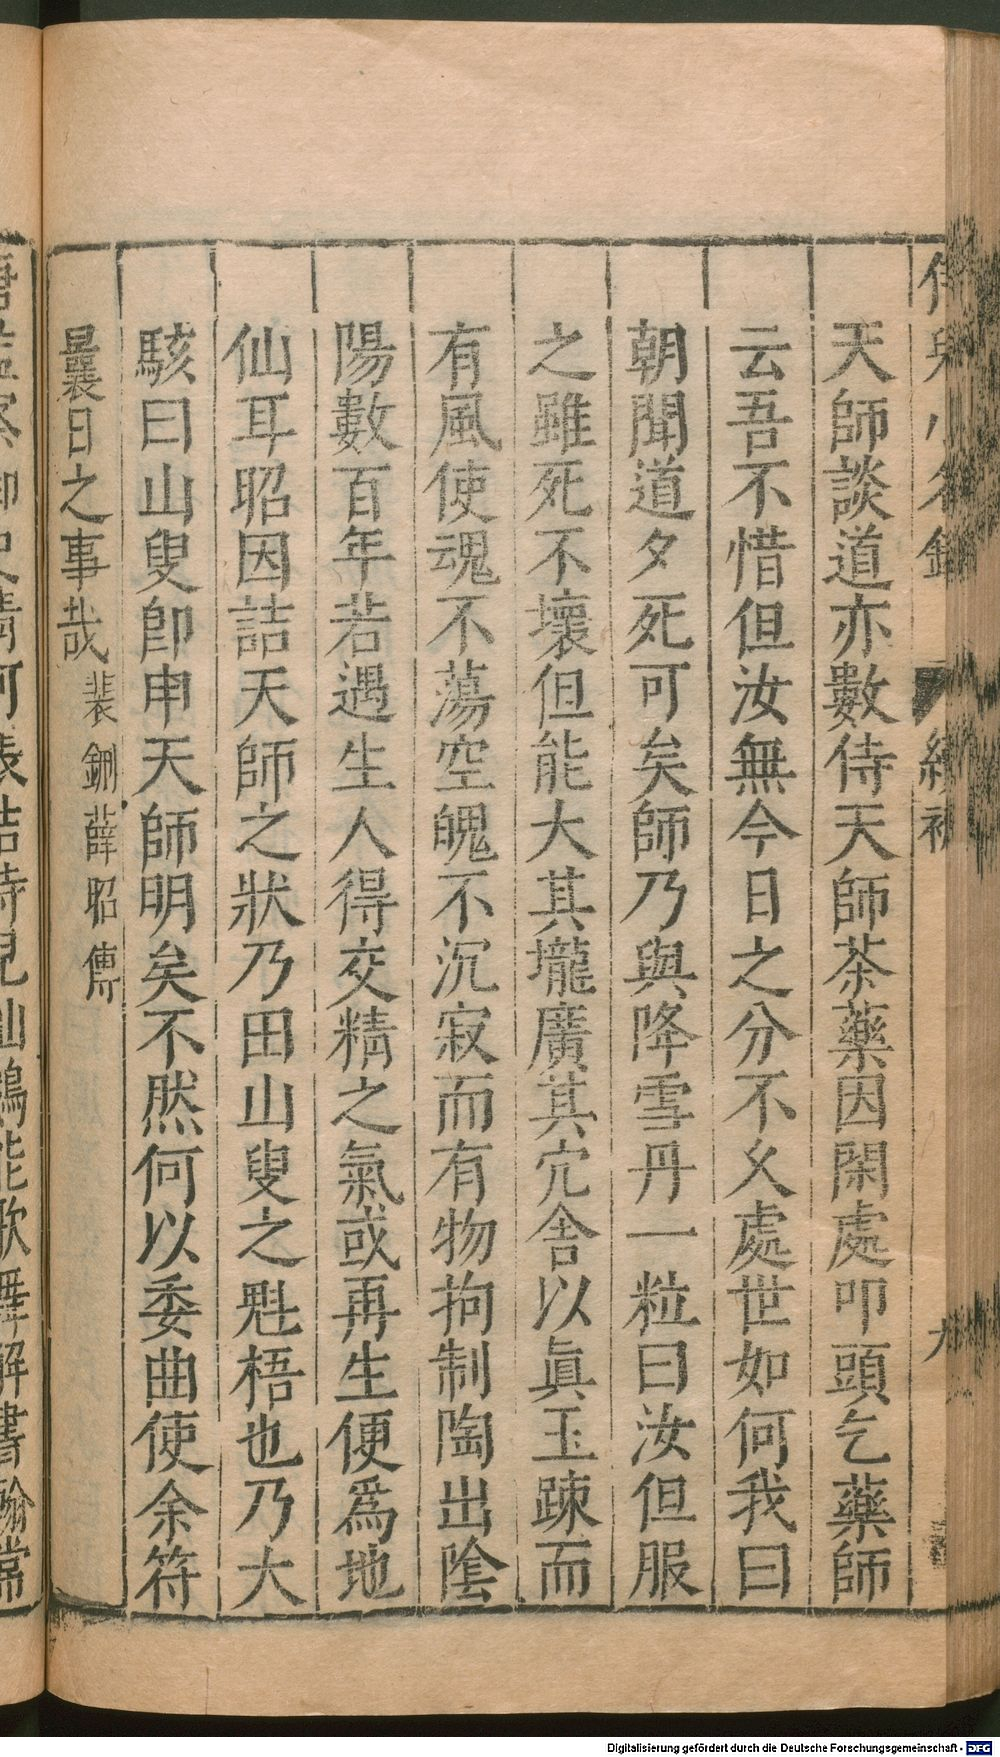 侍兒小名錄 續補 九
天師談道亦數侍天師茶藥因閑處叩頭乞藥師
云吾不惜但汝無今日之分不久處世如何我曰
朝聞道夕死可矣師乃與降雪丹一粒曰汝但服
之雖死不壞但能大其壠廣其穴舍以眞玉踈而
有風使魂不蕩空魄不沉寂而有物拘制陶出陰
陽數百年若遇生人得交精之氣或再生便爲地
仙耳昭因詰天師之狀乃田山叟之魁梧也乃大
駭曰山叟卽申天師明矣不然何以委曲使余符
曩日之事哉裴鉶薛昭傳
Digitalisierung gefördert durch die Deutsche Forschungsgemeinschaft - DFG